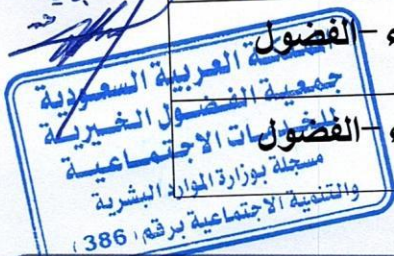 ء -الفضول
ء -الفضول
المملكة العربية السعودية
جمعية الفضول الخيرية
للخدمات الاجتماعية
مسجلة بوزارة الموارد البشرية
والتنمية الاجتماعية برقم (386)